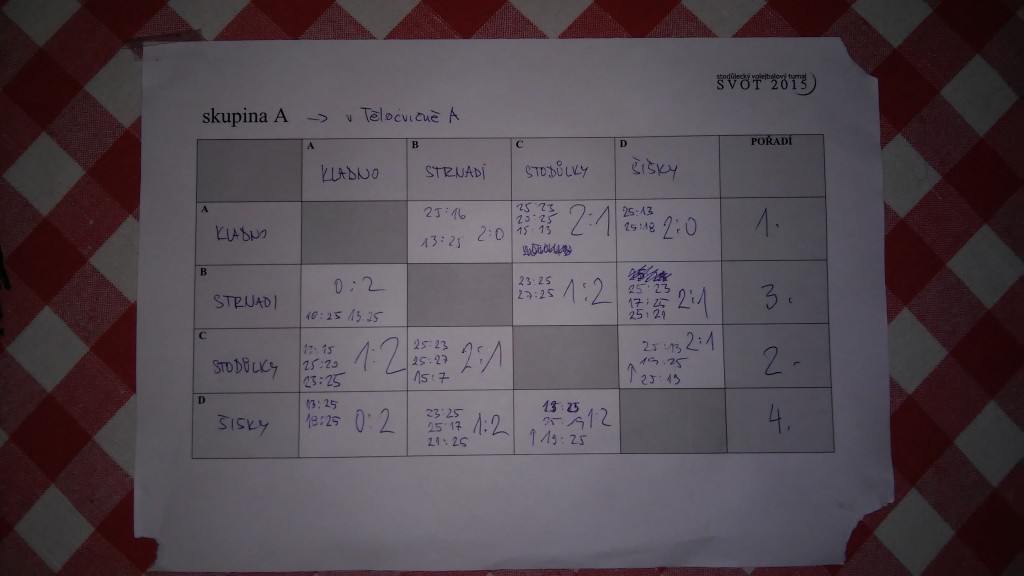 stodůlecký volejbalový turnaj
SVOT 2015
skupina A → v TĚLOCVIČNĚ A
A B C D POŘADÍ
KLADNO STRNADI STODŮLKY ŠIŠKY
A
KLADNO
25:16
13:25 2:0
25:23
20:25
15:13 2:1
25:13
25:18 2:0
1.
B
STRNADI
0:2
16:25 13:25
23:25
27:25 1:2
25:23
17:25
25:21 2:1
3.
C
STODŮLKY
25:20
23:25 1:2
25:23
25:27
15:7 2:1
25:13 2:1
19:25
↑ 25:19
2.
D
ŠIŠKY
13:25
18:25 0:2
23:25
25:17
21:25 1:2
13:25
25:19 1:2
↑ 19:25
4.